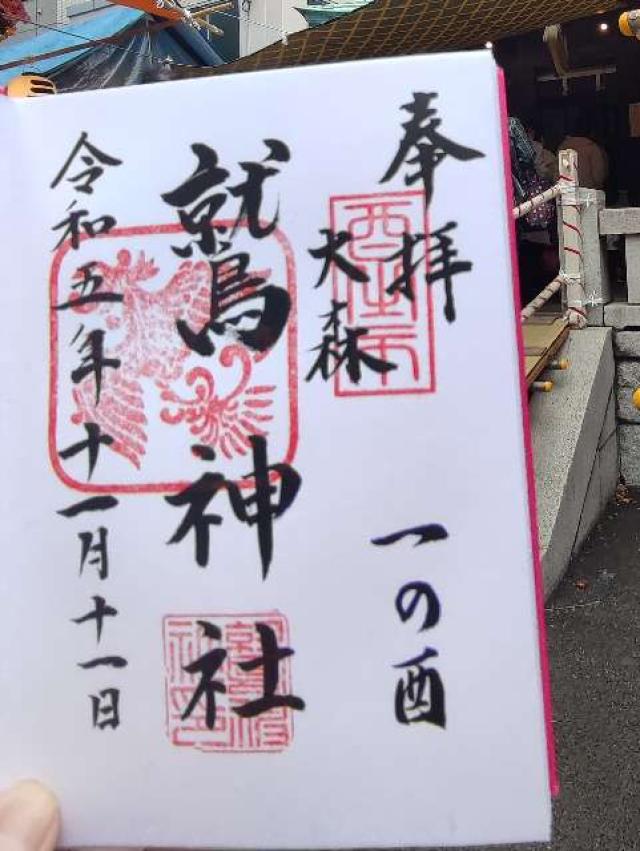 奉拝
大森
一の酉
鷲神社
令和五年十一月十一日